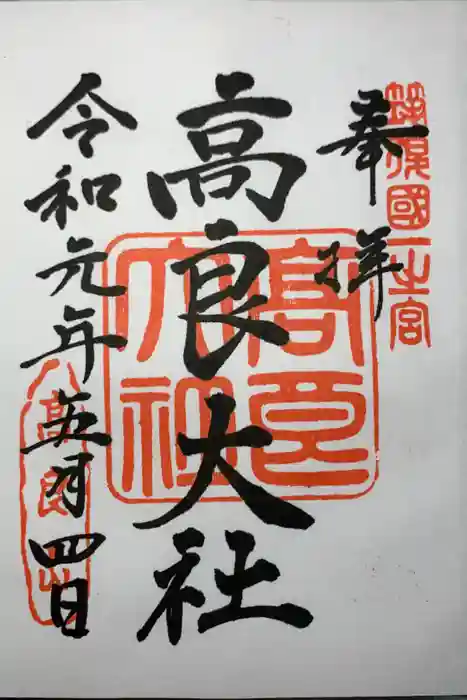 筑後國一之宮
奉拝
高良大社
高良大社
令和元年五月四日
高良山